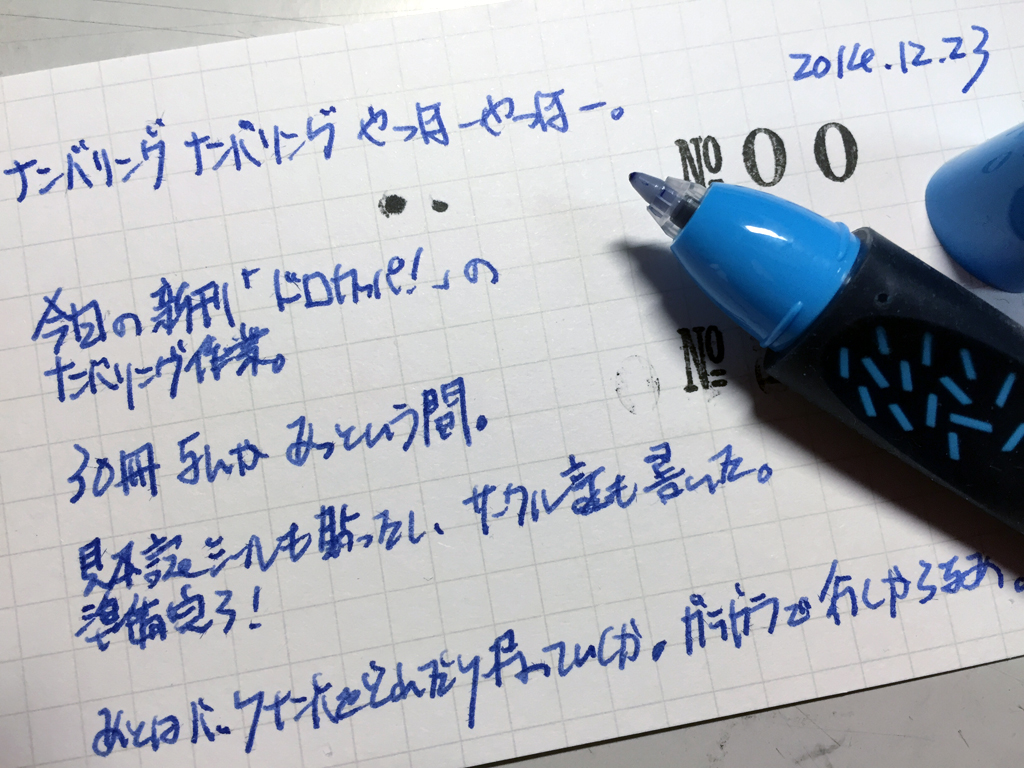 2014.12.23
ナンバリング ナンバリング やっほーやっほー。
№ 00
今日の新刊「ドロカッパ!」の
ナンバリング作業。
№
30冊なんかあっという間。
見本誌シールも貼ったし、サークル証も書いた。
準備完了!
あとはバックナンバをどれだけ持っていくか。ガラガラで行しかろなあ。